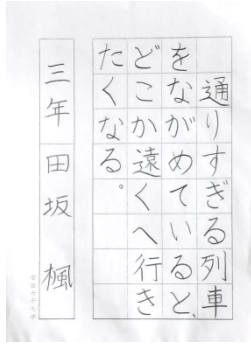 通りすぎる列車
をながめていると、
どこか遠くへ行き
たくなる。
三年 田坂 楓